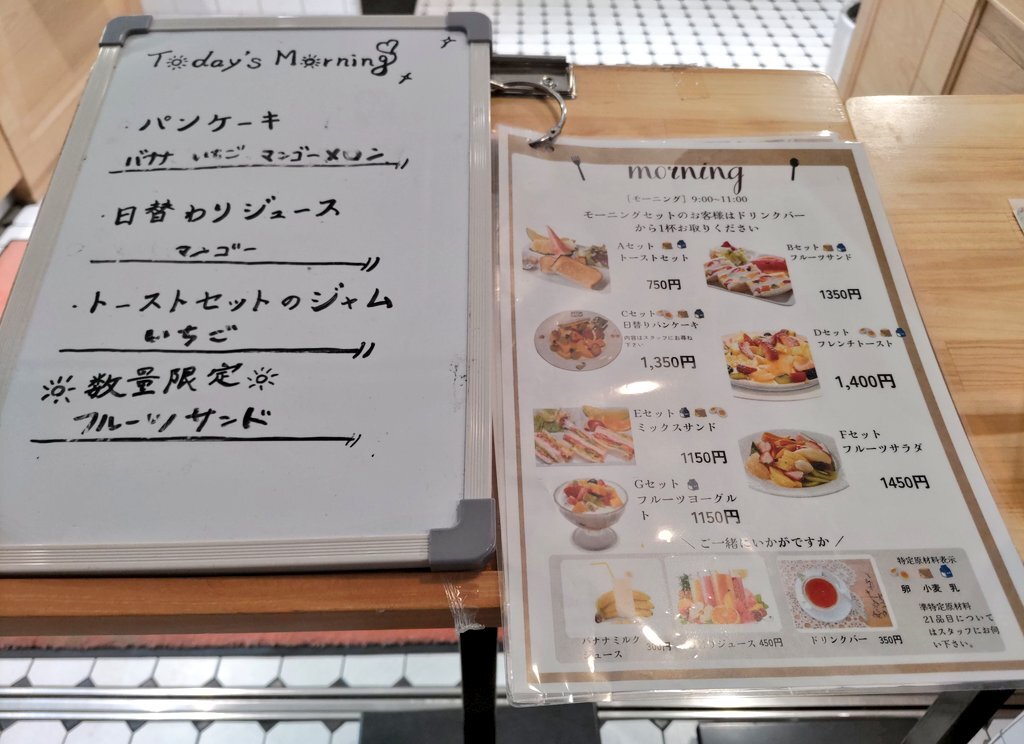 Today's Morning
・パンケーキ
バナナ いちご マンゴー メロン
・日替わりジュース
マンゴー
・トーストセットのジャム
いちご
数量限定
フルーツサンド
morning
［モーニング］9:00~11:00
モーニングセットのお客様はドリンクバー
から1杯お取りください
Aセット
トーストセット
750円
Bセット
フルーツサンド
1350円
Cセット
日替りパンケーキ
内容はスタッフにお尋ね
下さい
1,350円
Dセット
フレンチトースト
1,400円
Eセット
ミックスサンド
1150円
Fセット
フルーツサラダ
1450円
Gセット
フルーツヨーグル
ト
1150円
＼ご一緒にいかがですか／
バナナミルク
ジュース
300円
ジュース 450円
ドリンクバー 350円
特定原材料表示
卵 小麦 乳
準特定原材料
21品目について
はスタッフにお伺
い下さい。